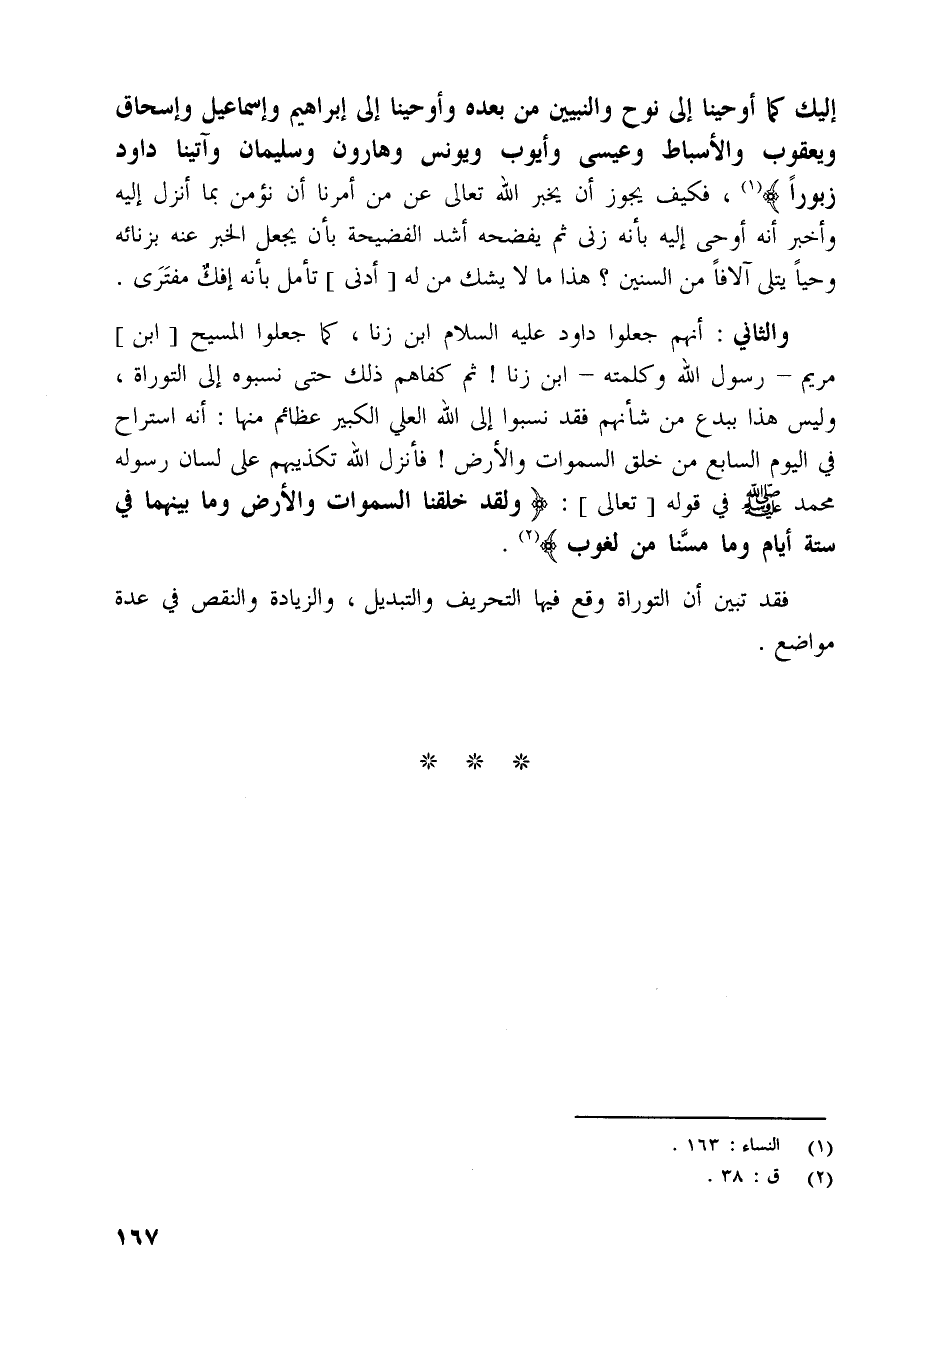 إليك كما أوحينا إلى نوح والنبيين من بعده وأوحينا إلى إبراهيم وإسماعيل وإسحاق
ويعقوب والأسباط وعيسى وأيوب ويونس وهارون وسليمان وآتينا داود
زبوراً ﴾(١) ، فكيف يجوز أن يخبر الله تعالى عن من أمرنا أن نؤمن بما أنزل إليه
وأخبر أنه أوحى إليه بأنه زنى ثم يفضحه أشد الفضيحة بأن يجعل الخبر عنه بزنائه
وحياً يتلى آلافاً من السنين ؟ هذا ما لا يشك من له [ أدنى ] تأمل بأنه إفكٌ مفتَرَى .
والثاني : أنهم جعلوا داود عليه السلام ابن زنا ، كما جعلوا المسيح [ ابن ]
مريم – رسول الله وكلمته – ابن زنا ! ثم كفاهم ذلك حتى نسبوه إلى التوراة ،
وليس هذا ببدع من شأنهم فقد نسبوا إلى الله العلي الكبير عظائم منها : أنه استراح
في اليوم السابع من خلق السموات والأرض ! فأنزل الله تكذيبهم على لسان رسوله
محمد ﷺ في قوله [ تعالى ] : ﴿ ولقد خلقنا السموات والأرض وما بينهما في
ستة أيام وما مسَّنا من لغوب ﴾(٢) .
فقد تبين أن التوراة وقع فيها التحريف والتبديل ، والزيادة والنقص في عدة
مواضع .
* * *
(١) النساء : ١٦٣ .
(٢) ق : ٣٨ .
١٦٧